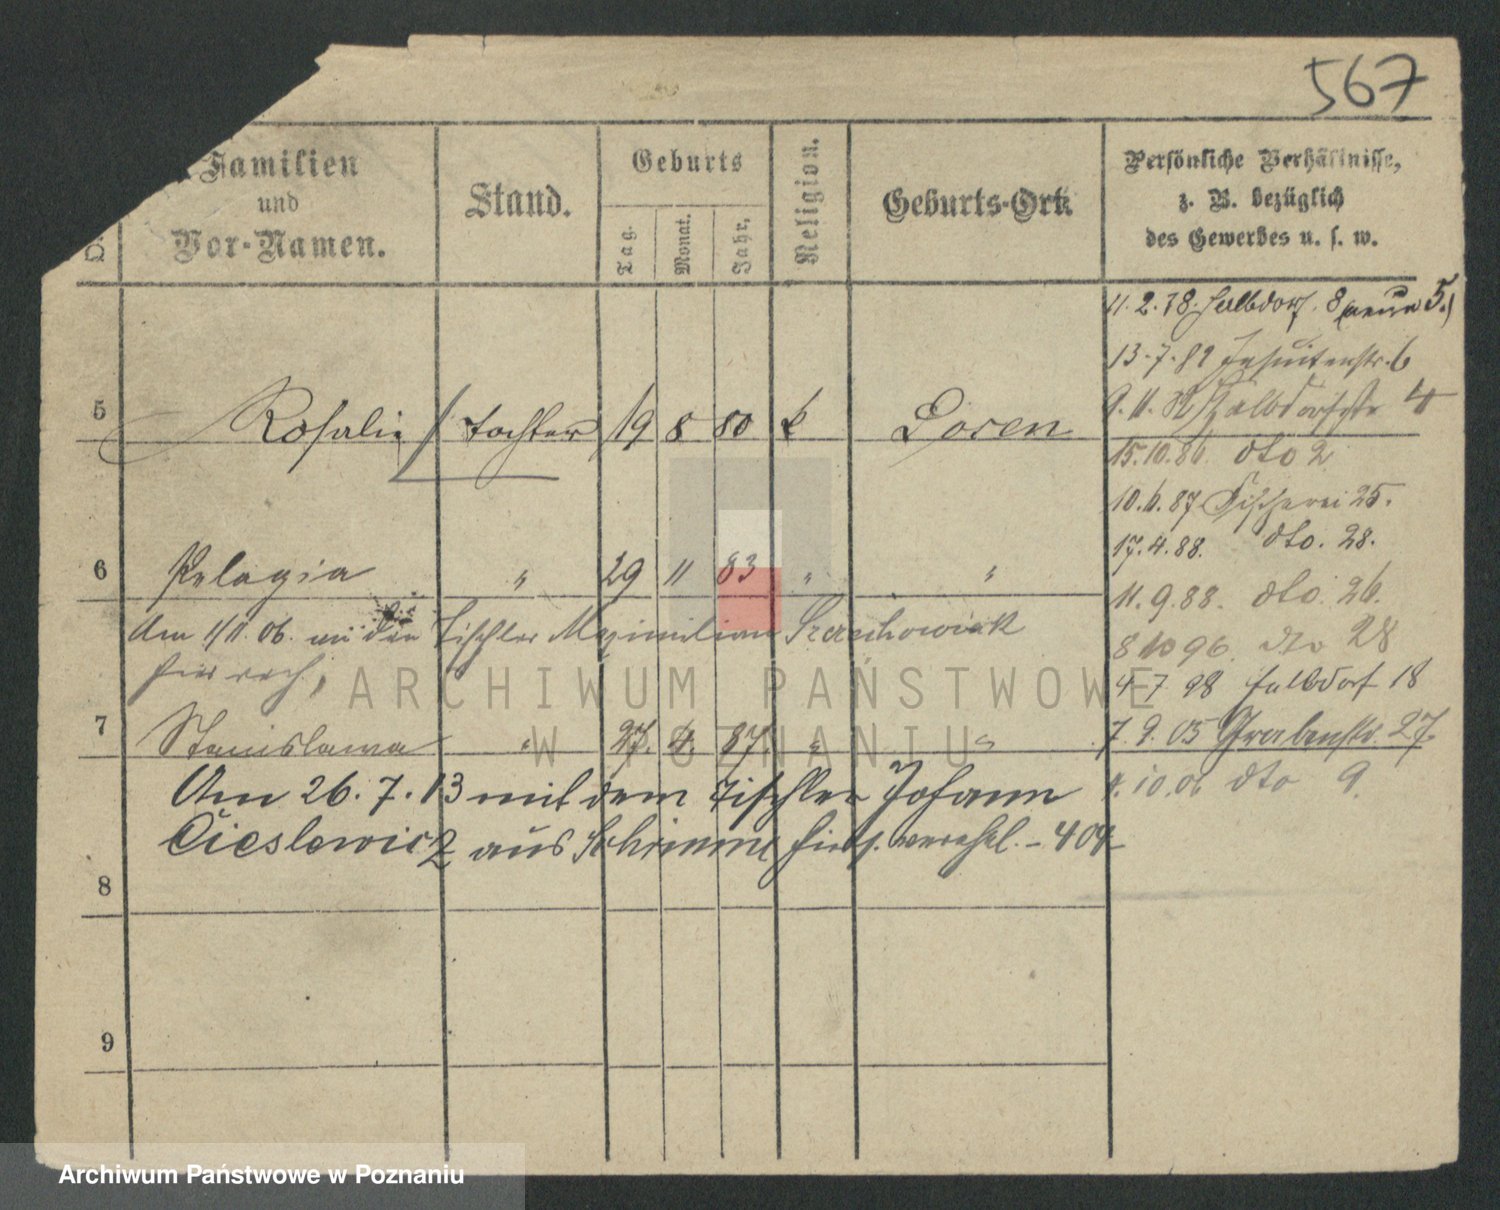 567
Familien
und
Vor-Namen.
Stand.
Geburts
Tag.
Monat.
Jahr.
Religion.
Geburts-Ort.
Persönliche Verhältnisse,
z. B. bezüglich
des Gewerbes u. s. w.
11.2.78. Halbdorf. 8 (neue 5.)
13.7.82 Jesuitenstr. 6
9.11. Halbdorfstr 4
5 Rosalie Tochter 19 8 80 k Posen
15.10.86. dto 2
10.6.87 Fischerei 25.
17.4.88. dto. 28.
6 Pelagia " 29 11 83 " "
11.9.88. dto. 26.
Am 1/11.06. mit den Tischler Maximilian
hier
8 10 96. dto 28
4 7 98 Halbdorf 18
7 Stanislawa " 27. 4. 87 " "
7.9.05 Grabenstr. 27.
4.10.06 dto 9.
Am 26.7.13 mit dem Tischler Johann
Cieslewicz aus Schrimm hier verehel. - 404
8
9
ARCHIWUM PAŃSTWOWE
W POZNANIU
Archiwum Państwowe w Poznaniu